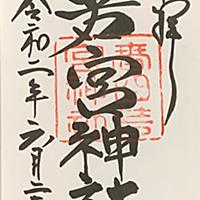 奉拝
若宮神社
令和二年六月二